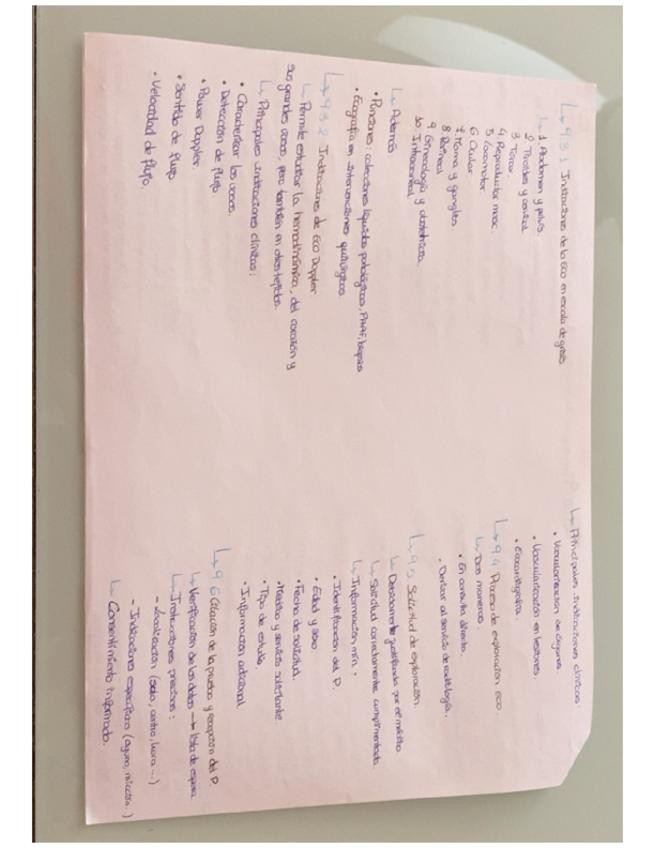 ↳ 9.3.1 Indicaciones de la eco en escala de grises
↳ 1. Abdomen y pelvis.
2 Tiroides y cervical
3 Tórax.
4 Reproductor masc.
5 Locomotor
6 Ocular
7. Mama y ganglios
8 Perineal
9 Ginecología y obstetricia.
10. Intracraneal
↳ Además.
• Punciones: colecciones líquidas patológicas, PAAF, biopsias
• Ecografía en intervenciones quirúrgicas.
↳ 9.3.2 Indicaciones de Eco Doppler
↳ Permite estudiar la hemodinámica, del corazón y
sus grandes vasos, pero también en otros tejidos.
↳ Principales indicaciones clínicas:
• Caracterizar los vasos.
• Detección de flujo
• Power Doppler.
• Sentido de flujo
• Velocidad de flujo.
↳ Principales indicaciones clínicas:
• Vascularización de órganos.
• Vascularización en lesiones.
• Ecocardiografía.
↳ 9.4 Proceso de exploración eco.
↳ Dos maneras.
• En consulta directa.
• Derivar al servicio de radiología.
↳ 9.5 Solicitud de exploración.
↳ Debidamente justificada por el médico
↳ Solicitud correctamente cumplimentada.
↳ Información mín:
• Identificación del P.
• Edad y sexo.
• Fecha de solicitud.
• Médico y servicio solicitante
• Tipo de estudio.
• Información adicional
↳ 9.6 Citación de la prueba y recepción del P.
↳ Verificación de los datos → lista de espera
↳ Instrucciones precisas:
- Localización (sala, centro, hora ...)
- Indicaciones específicas (ayuno, micción..)
↳ Consentimiento informado.